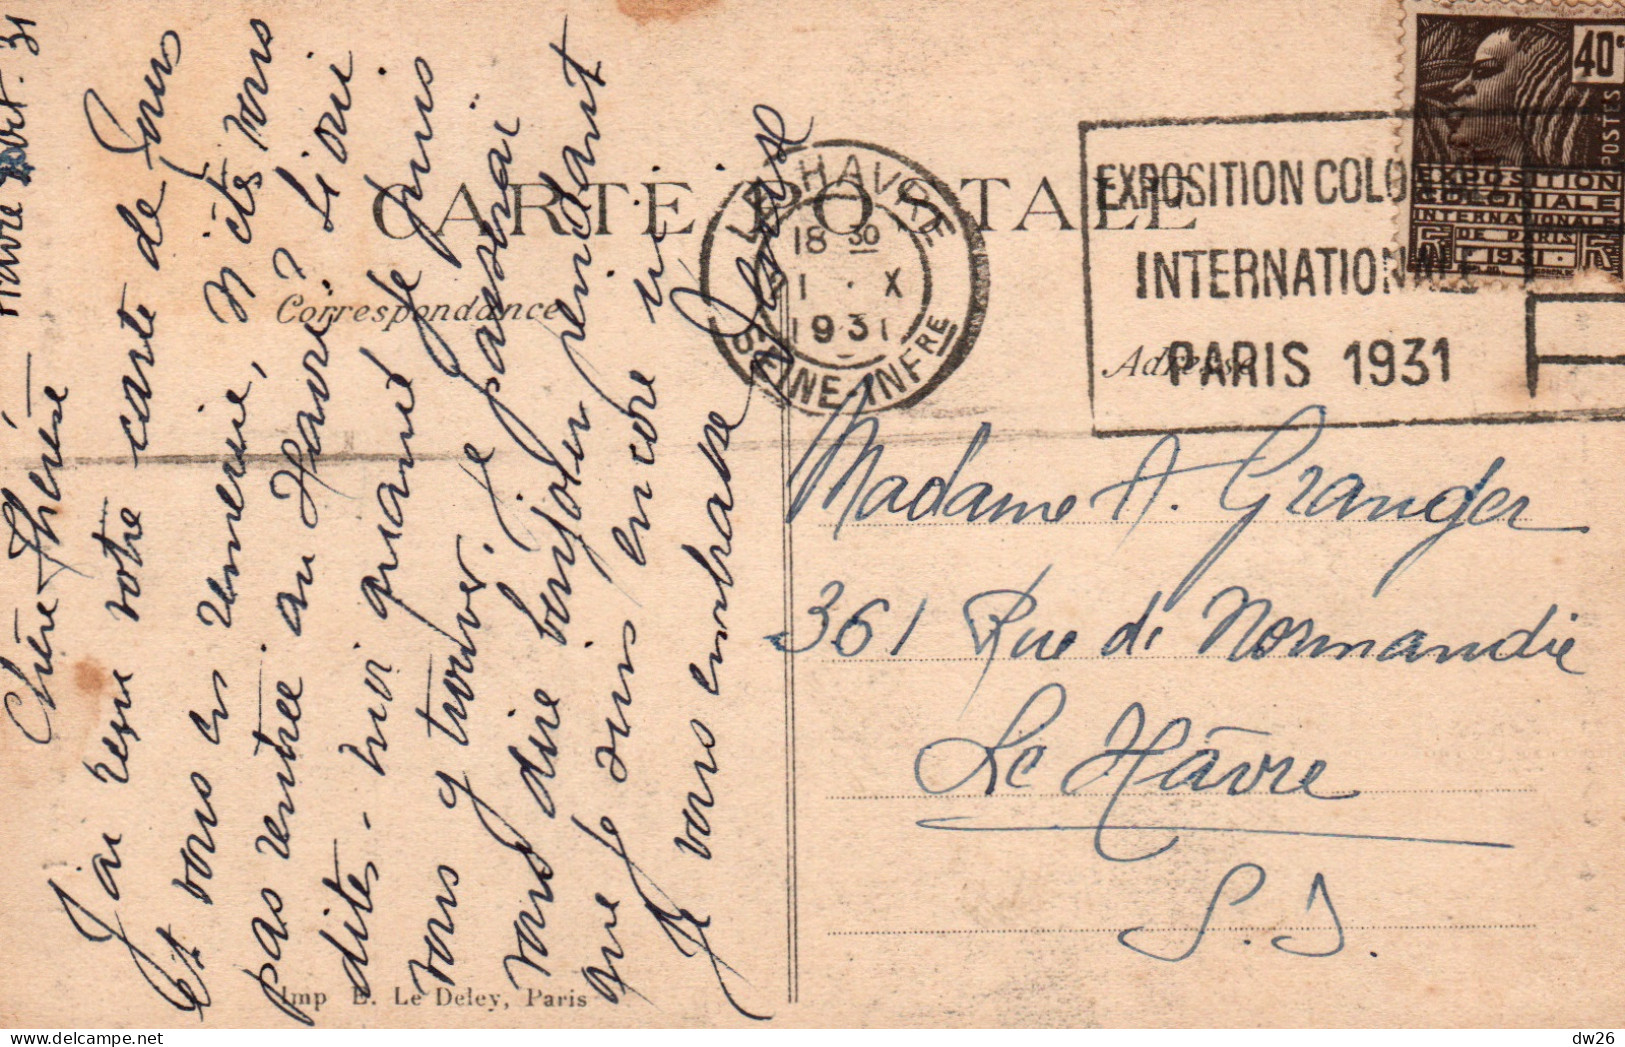 Havre 1 Oct. 31
Chère Thérèse
J'ai reçu votre carte de Paris
et vous en remercie, N'êtes vous
pas rentrée au Havre? Si oui
dites-moi quand je puis
vous y trouver. Je passerai
vous dire bonjour pendant
que je suis encore ici
Je vous embrasse
CARTE POSTALE
Correspondance
Adresse
LE HAVRE
18 30
1 · X
1931
SEINE-INFRE
EXPOSITION COLO
INTERNATIONALE
PARIS 1931
40c
POSTES
EXPOSITION
COLONIALE
INTERNATIONALE
DE PARIS
1931
Madame A. Granger
361 Rue de Normandie
Le Hâvre
S.I.
Imp E. Le Deley, Paris
dw26